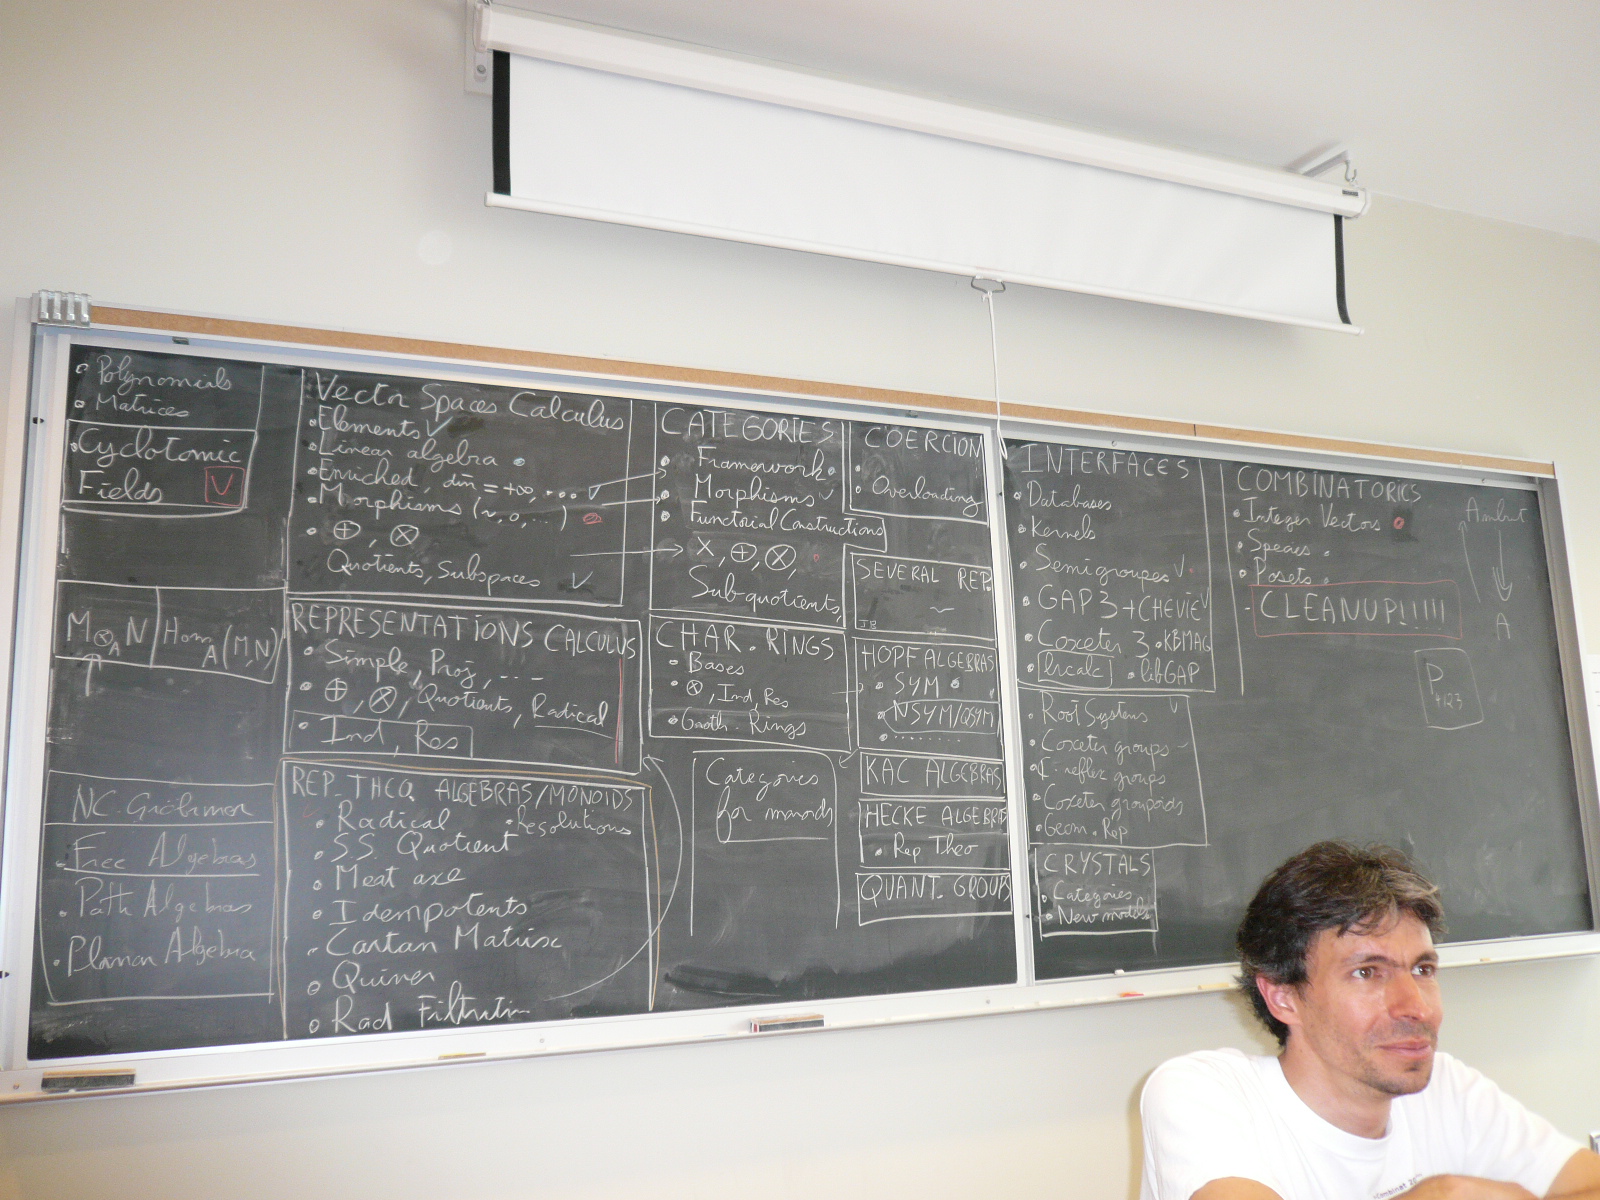 • Polynomials
• Matrices
• Cyclotomic
Fields V
M ⊗_A N
Hom_A (M,N)
Free Algebras
• Path Algebras
• Planar Algebra
Vector Spaces Calculus
• Elements ✓
• Linear algebra •
• Enriched, dim = +∞, ... ✓
• Morphisms (~, 0, ...)
• ⊕, ⊗
Quotients, Subspaces ✓
REPRESENTATIONS CALCULUS
• Simple, Proj, ...
• ⊕, ⊗, Quotients, Radical
• Ind, Res
REP. THEO. ALGEBRAS/MONOIDS
• Radical • Resolutions
• S.S. Quotient
• Meat axe
• Idempotents
• Cartan Matrix
• Quiver
• Rad Filtration
CATEGORIES
• Framework •
• Morphisms ✓
• Functorial Constructions
×, ⊕, ⊗,
Subquotients,
CHAR. RINGS
• Bases
• ⊗, Ind, Res
• Groth. Rings
Categories
for monoids
COERCION
•
• Overloading
SEVERAL REP.
~
HOPF ALGEBRAS
• SYM •
• NSYM/QSYM
• ........
KAC ALGEBRAS
HECKE ALGEBRAS
• Rep Theo
QUANT. GROUPS
INTERFACES
• Databases
• Kernels
• Semigroupes ✓
• GAP 3 + CHEVIE ✓
• Coxeter 3 • KBMAG
• lrcalc • libGAP
• Root Systems ✓
• Coxeter groups -
• C-reflex groups
• Coxeter groupoids
• Geom. Rep
CRYSTALS
• Categories
• New models
COMBINATORICS
• Integer Vectors •
• Species •
• Posets •
- CLEANUP!!!!!
A
P_4123